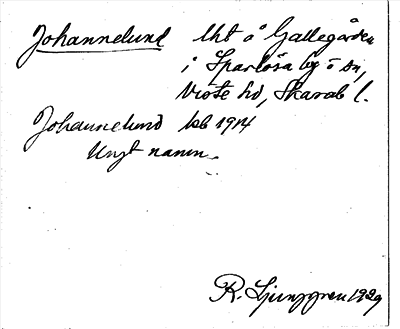 Johannelund Uht å Gallegården
i Sparlösa by o sn,
Viste hd, Skarab l.
Johannelund kb 1914
Ungt namn.
R. Ljunggren 1929